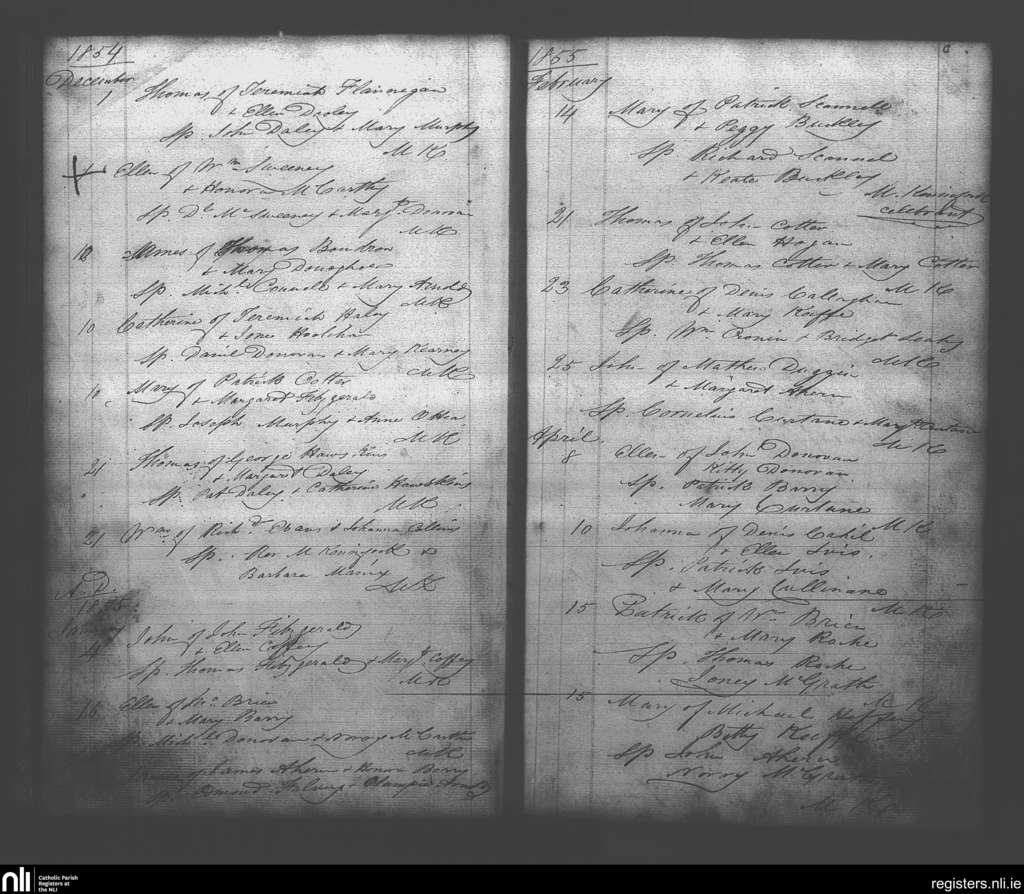 1854
December
1 Thomas of Jeremiah Flannegan
+ Ellen Dooley
Sp. John Daley + Mary Murphy
M K
Ellen of Wm Sweeney
+ Honora McCarthy
Sp Dl McSweeney + Margt
M K
18 James of Thomas
+ Mary Donoghoe
Sp. Michl Connell + Mary
M K
10 Catherine of Jeremiah Haley
+ Jones
Sp. Daniel Donovan + Mary Kearney
M K
10 Mary of Patrick Cotter
+ Margaret Fitzgerald
Sp. Joseph Murphy + Anne
M K
21 Thomas of George Hawkins
+ Margaret Daley
Sp. Pat Daley + Catherine Hawkins
M K
21 Wm of Richd Evans + Johanna Collins
Sp. Rev M +
Barbara
M K
A.D.
1855
4 John of John Fitzgerald
+ Ellen Coffey
Sp Thomas Fitzgerald + Margt Coffey
M K
16 Ellen of Wm Brien
+ Mary Barry
Sp. Donovan + Norry McCarthy
M K
of James Ahern + Honora Berry
Sp.
1855
February
14 Mary of Patrick Scannell
+ Peggy Buckley
Sp. Richard Scannel
+ Keate Buckley
M.
celebrant
21 Thomas of John Cotter
+ Ellen Hogan
Sp Thomas Cotter + Mary Cotter
M K
23 Catherine of Denis Calleghan
+ Mary Keiffe
Sp. Wm Cronin + Bridget Leahy
M K
25 John of Mathew Duggin
+ Margaret Ahern
Sp Cornelius Curtane + Margt Curtane
M K
April
8 Ellen of John Donovan
Kitty Donovan
Sp. Patrick Barry
Mary Curtane
M K
10 Johanna of Denis Cahil
+ Ellen Ivis.
Sp. Patrick Ivis
+ Mary Cullinane
M K
15 Patrick of Wm Brien
+ Mary Roche
Sp. Thomas Roche
Joney McGrath
M K
15 Mary of Michael
Betty Keiffe
Sp John Ahern
Norry McGrath
M K
nli
Catholic Parish
Registers at
the NLI
registers.nli.ie